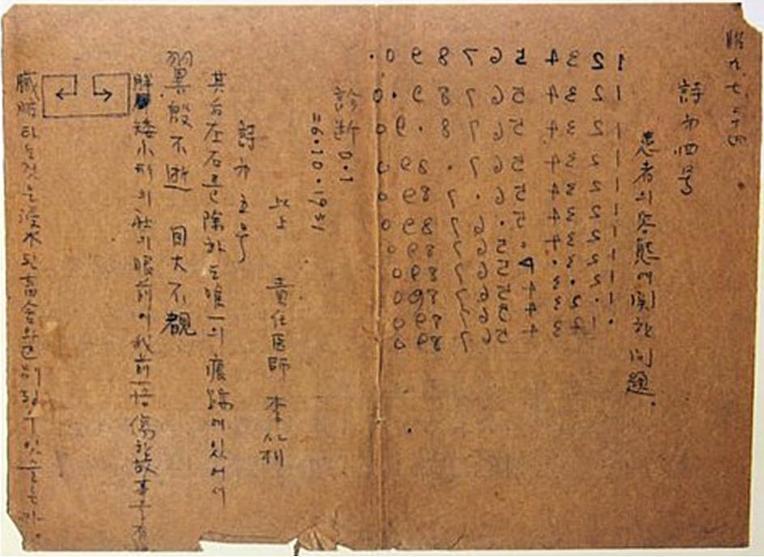 昭九、七、二四
詩第四号
患者의容態에関한問題.
1234567890·
123456789·0
12345678·90
1234567·890
123456·7890
12345·67890
1234·567890
123·4567890
12·34567890
1·234567890
·1234567890
診断 0·1
26·10·1931
以上 責任医師 李箱
詩第五号
其后左右를除하는唯一의痕跡에있어서
翼殷不逝 目大不覩
胖矮小形의神의眼前에我前落傷한故事를有
臟腑타는것은浸水된畜舍와区別될수있을는가.